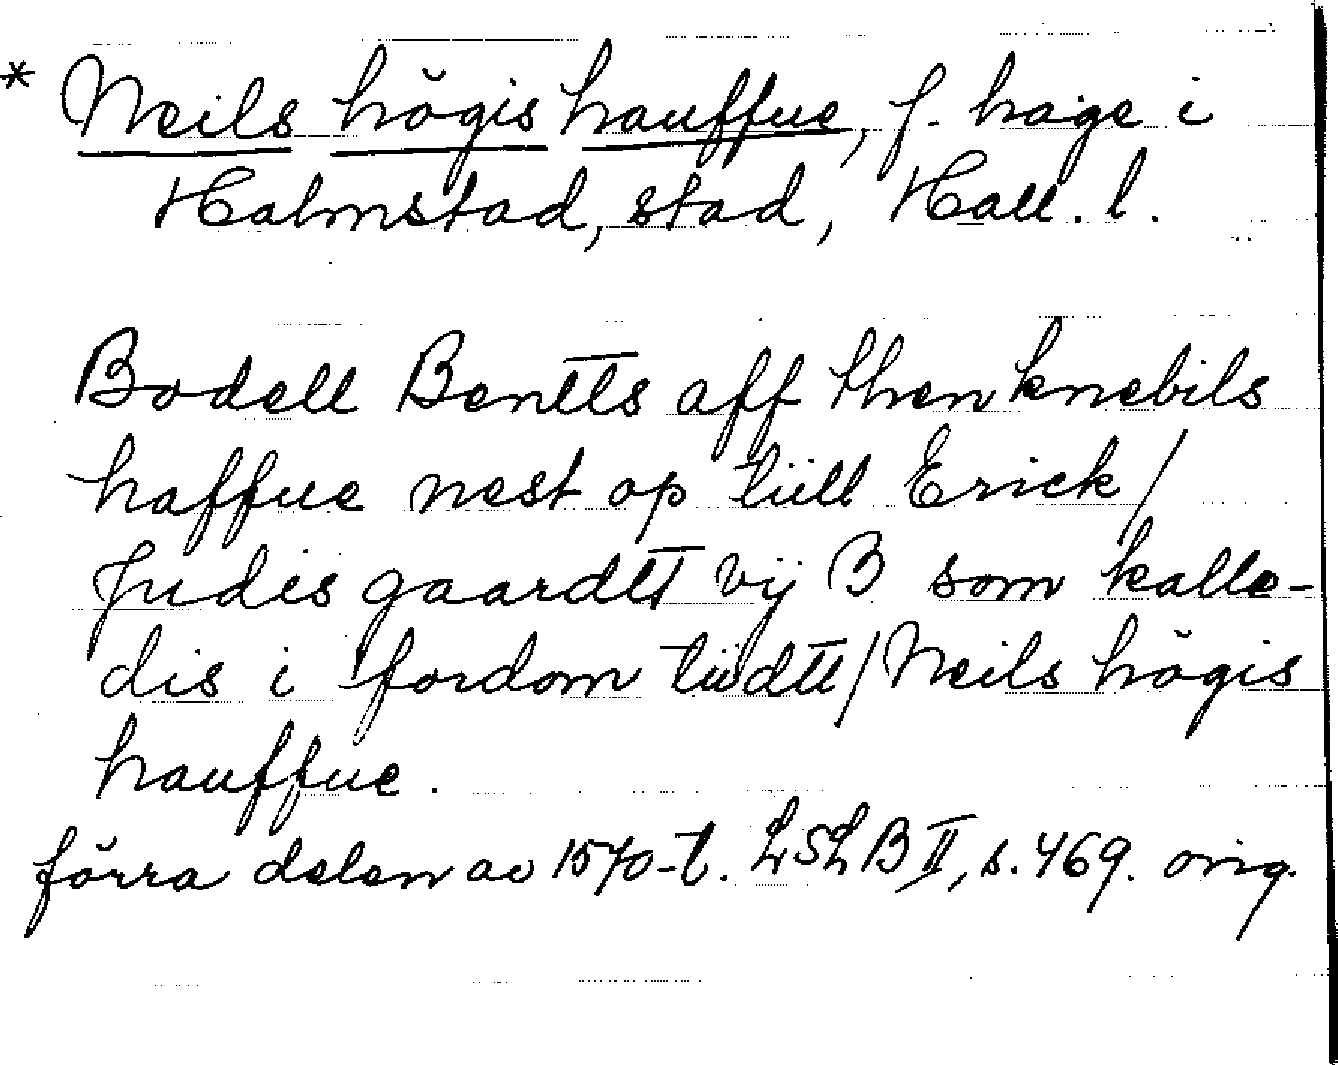 * Neils högis hauffue, f. hage i
Halmstad, stad, Hall. l.
Bodell Bentts aff then knebils
haffue nest op tiill Erick/
Judis gaardtt vij B som kalle-
dis i fordom tiidtt/Neils högis
hauffue.
förra delen av 1570-t. LSLB II, s. 469. orig.